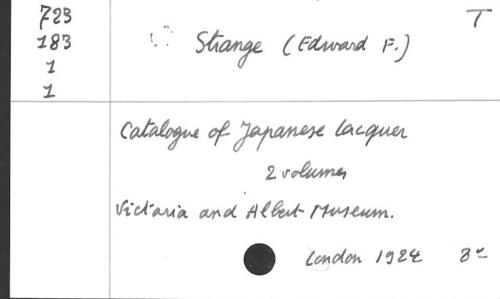 723 T
183 Strange (Edward F.)
1
1
Catalogue of Japanese lacquer
2 volumes
Victoria and Albert Museum.
London 1924 8º